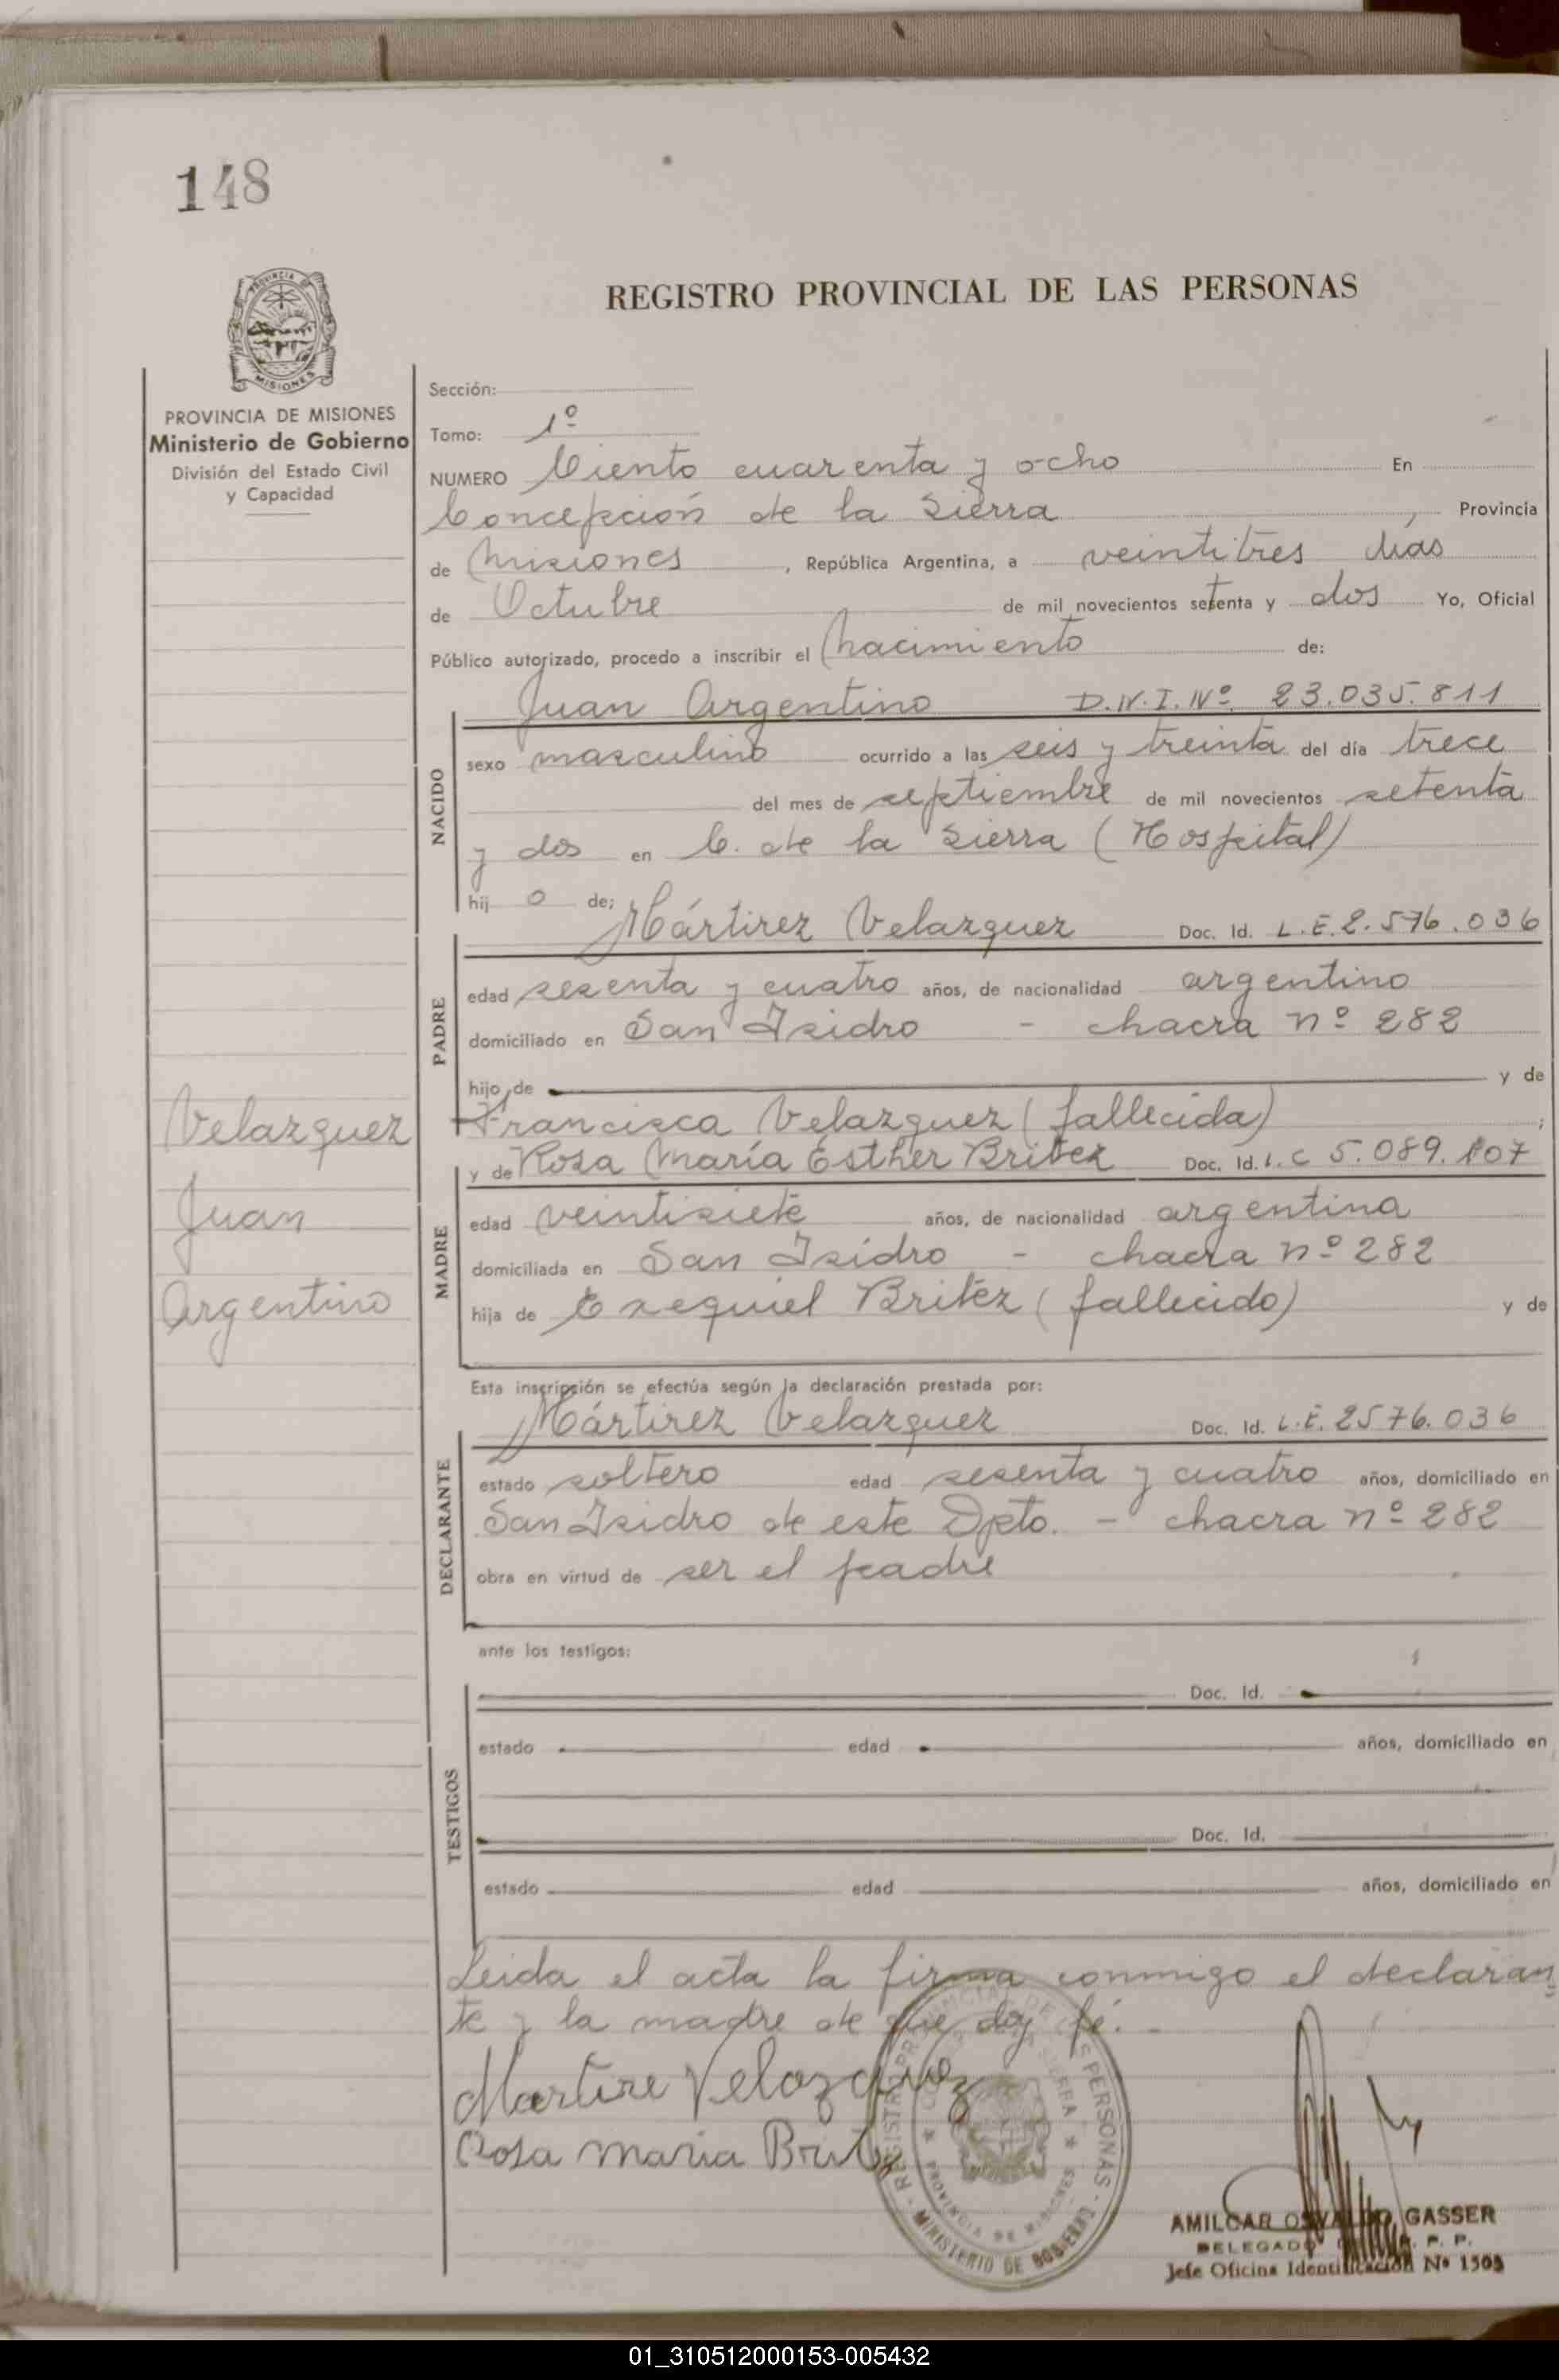 148
REGISTRO PROVINCIAL DE LAS PERSONAS
PROVINCIA
MISIONES
PROVINCIA DE MISIONES
Ministerio de Gobierno
División del Estado Civil
y Capacidad
Sección:
Tomo: 1º
NUMERO Ciento cuarenta y ocho En
Concepción de la Sierra, Provincia
de Misiones, República Argentina, a veintitres días
de Octubre de mil novecientos setenta y dos Yo, Oficial
Público autorizado, procedo a inscribir el nacimiento de:
Juan Argentino D.N.I. Nº 23.035.811
NACIDO
sexo masculino ocurrido a las seis y treinta del día trece
del mes de septiembre de mil novecientos setenta
y dos en C. de la Sierra (Hospital)
hij o de;
Mártirez Velazquez Doc. Id. L.E. 2.576.036
PADRE
edad sesenta y cuatro años, de nacionalidad argentino
domiciliado en San Isidro - chacra nº 282
hijo de y de
Francisca Velazquez (fallecida) ;
y de Rosa María Esther Britez Doc. Id. L.C 5.089.107
MADRE
edad veintisiete años, de nacionalidad argentina
domiciliada en San Isidro - chacra nº 282
hija de Exequiel Britez (fallecido) y de
Velazquez
Juan
Argentino
Esta inscripción se efectúa según la declaración prestada por:
Mártirez Velazquez Doc. Id. L.E. 2576.036
DECLARANTE
estado soltero edad sesenta y cuatro años, domiciliado en
San Isidro de este Dpto. - chacra nº 282
obra en virtud de ser el padre
ante los testigos:
Doc. Id.
TESTIGOS
estado edad años, domiciliado en
Doc. Id.
estado edad años, domiciliado en
Leida el acta la firma conmigo el declaran
te y la madre de que doy fé.-
Martire Velazquez
Rosa Maria Brit
REGISTRO PROVINCIAL DE LAS PERSONAS - MINISTERIO DE GOBIERNO
PROVINCIA DE MISIONES
AMILCAR OSVALDO GASSER
DELEGADO R. P. P.
Jefe Oficina Identificación Nº 1503
01_310512000153-005432